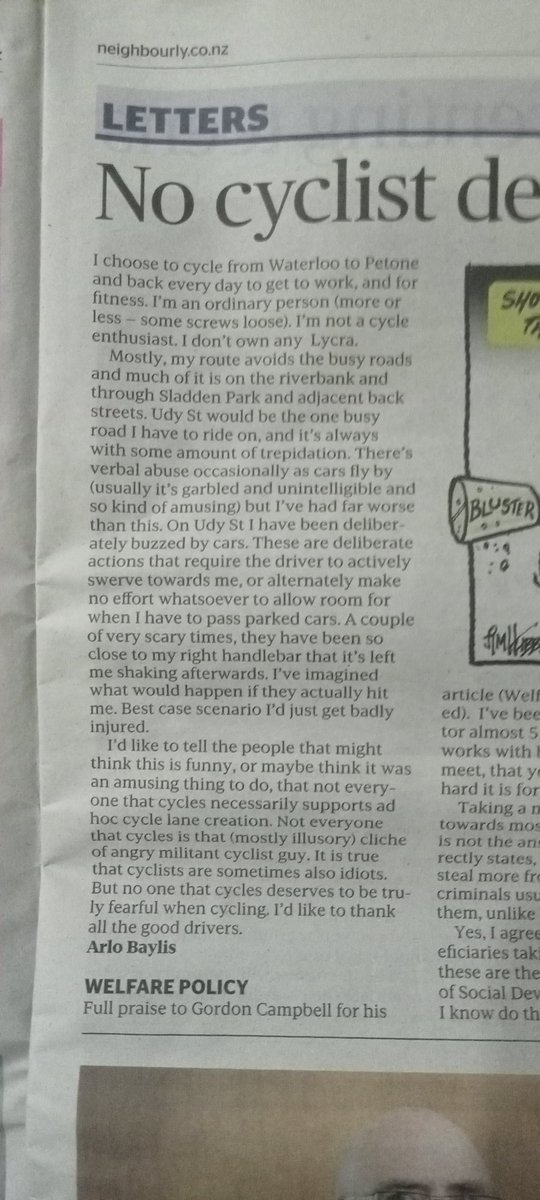 neighbourly.co.nz
LETTERS
No cyclist de
I choose to cycle from Waterloo to Petone
and back every day to get to work, and for
fitness. I'm an ordinary person (more or
less – some screws loose). I'm not a cycle
enthusiast. I don't own any Lycra.
Mostly, my route avoids the busy roads
and much of it is on the riverbank and
through Sladden Park and adjacent back
streets. Udy St would be the one busy
road I have to ride on, and it's always
with some amount of trepidation. There's
verbal abuse occasionally as cars fly by
(usually it's garbled and unintelligible and
so kind of amusing) but I've had far worse
than this. On Udy St I have been deliber-
ately buzzed by cars. These are deliberate
actions that require the driver to actively
swerve towards me, or alternately make
no effort whatsoever to allow room for
when I have to pass parked cars. A couple
of very scary times, they have been so
close to my right handlebar that it's left
me shaking afterwards. I've imagined
what would happen if they actually hit
me. Best case scenario I'd just get badly
injured.
I'd like to tell the people that might
think this is funny, or maybe think it was
an amusing thing to do, that not every-
one that cycles necessarily supports ad
hoc cycle lane creation. Not everyone
that cycles is that (mostly illusory) cliche
of angry militant cyclist guy. It is true
that cyclists are sometimes also idiots.
But no one that cycles deserves to be tru-
ly fearful when cycling. I'd like to thank
all the good drivers.
Arlo Baylis
WELFARE POLICY
Full praise to Gordon Campbell for his
SHO
TH
BLUSTER
article (Welf
ed). I've bee
tor almost 5
works with
meet, that y
hard it is for
Taking a
towards mos
is not the an
rectly states,
steal more fr
criminals usu
them, unlike
Yes, I agree
eficiaries tak
these are the
of Social Dev
I know do th